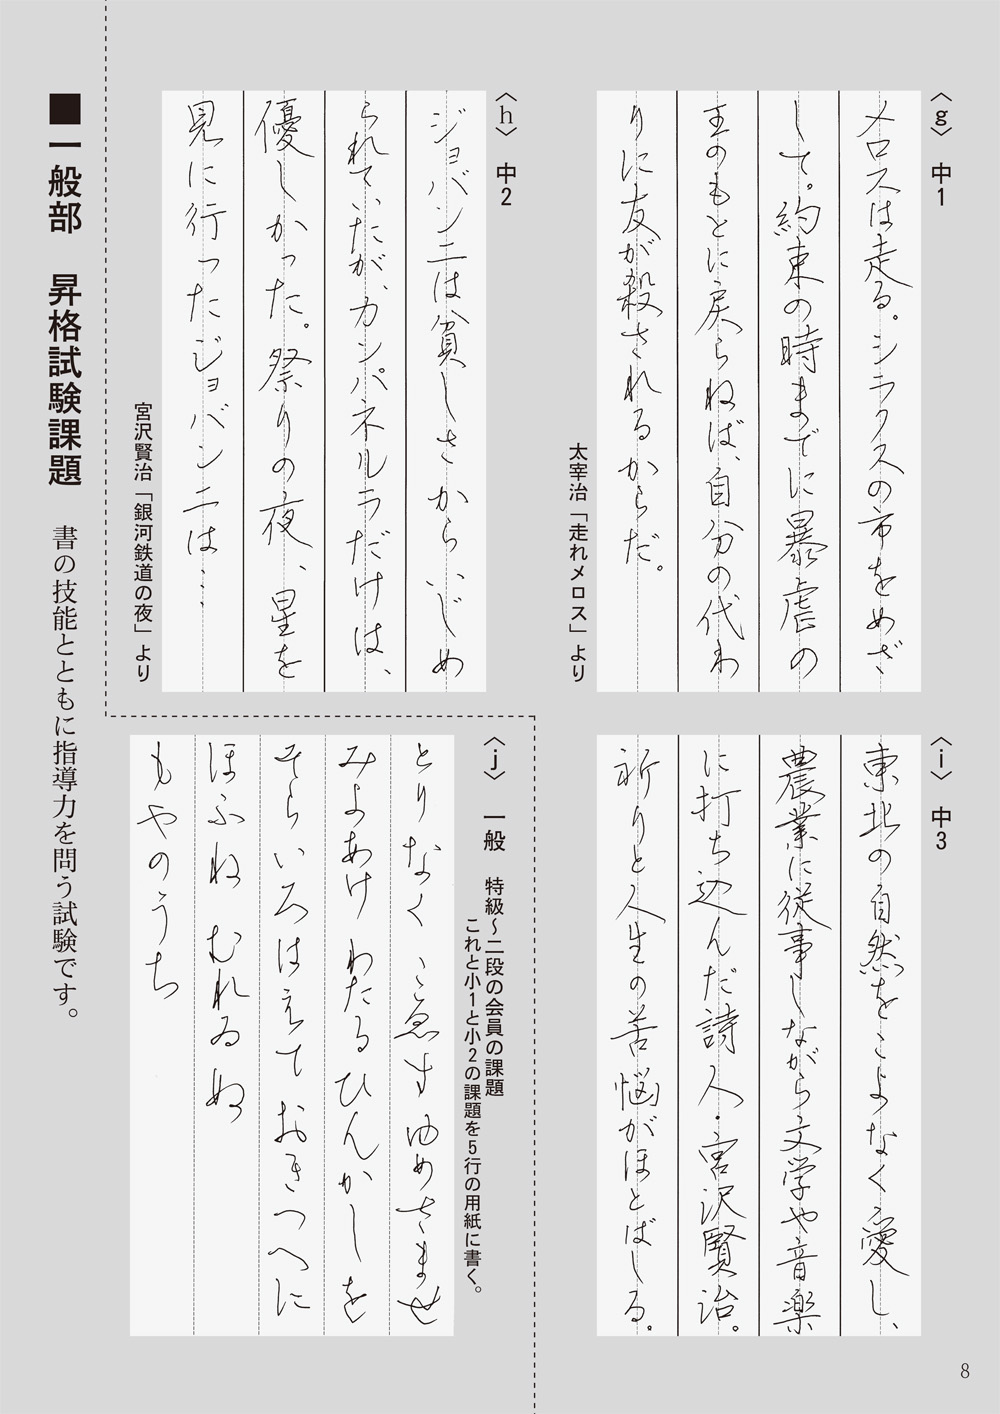 〈g〉 中1
メロスは走る。シラクスの市をめざ
して。約束の時までに暴虐の
王のもとに戻らねば、自分の代わ
りに友が殺されるからだ。
太宰治「走れメロス」より
〈h〉 中2
ジョバンニは貧しさからいじめ
られていたが、カンパネルラだけは、
優しかった。祭りの夜、星を
見に行ったジョバンニは…
宮沢賢治「銀河鉄道の夜」より
〈i〉 中3
東北の自然をこよなく愛し、
農業に従事しながら文学や音楽
に打ち込んだ詩人・宮沢賢治。
祈りと人生の苦悩がほとばしる。
〈j〉 一般 特級〜二段の会員の課題
これと小1と小2の課題を5行の用紙に書く。
とりなくこゑすゆめさませ
みよあけわたるひんかしを
そらいろはえておきつへに
ほふねむれゐぬ
もやのうち
■一般部 昇格試験課題 書の技能とともに指導力を問う試験です。
8